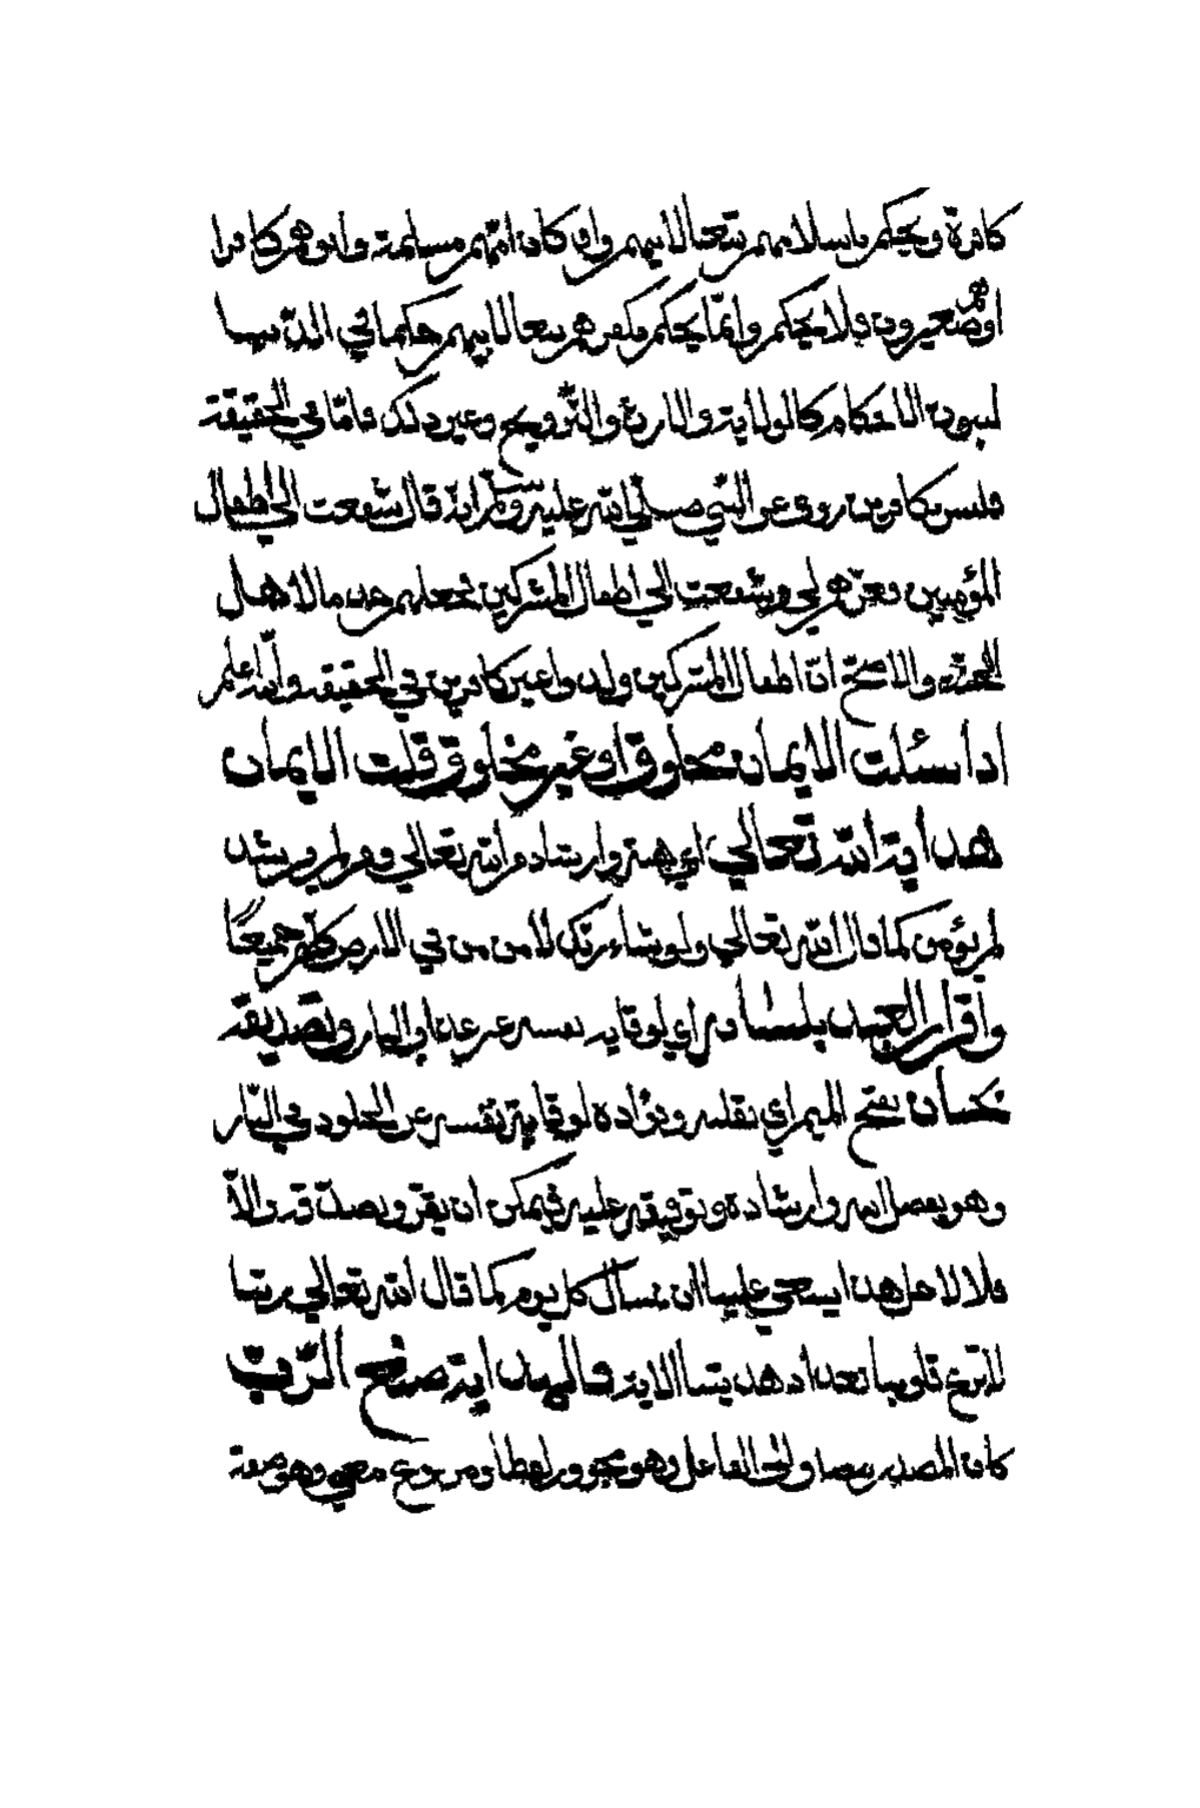 كافرة ويحكم باسلامهم تبعا لابيهم وان كان امّهم مسلمة وابوهم كافرا
اوهم صغيرون فلا يحكم وانّما يحكم بكفرهم تبعا لابيهم حكما في الدّنيا
لبيون الاحكام كالولاية والارث والتّزويج وغير ذلك فامّا في الحقيقة
فليس بكافرين روي عن النّبي صلّي الله عليه وسلّم انّه قال شفعت الي اطفال
المؤمنين وهم لي وشفعت الي اطفال المشركين فجعلهم خداما لاهال
الجنّة والاصحّ انّ اطفال المشركين ولدوا غير كافرين في الحقيقة والله اعلم
اذا سئلت الايمان مخلوق او غير مخلوق قلت الايمان
هداية الله تعالي اي هبته وارشاده الله تعالي ومن لم يرشد
لم يؤمن كما قال الله تعالي ولو شاء ربّك لامن من في الارض كلّهم جميعًا
واقرار العبد بلسانه اي لوقاية نفسه عن عذاب النار وتصديقه
بجنان بفتح الميم اي بقلبه وفؤاده لوقاية نفسه عن الخلود في النّار
وهو بفضل الله وارشاده وتوفيقه عليه فيمكن ان يقرّ ويصدّق والاّ
فلا لاجل هذا يستحي علينا ان نسأل كل يوم كما قال الله تعالي ربّنا
لا تزغ قلوبنا بعد اذ هديتنا الاية فالهداية صنع الرّبّ
كان المصدر مضاف الي الفاعل وهو مجرور لفظا ومرفوع معني وهو صفة